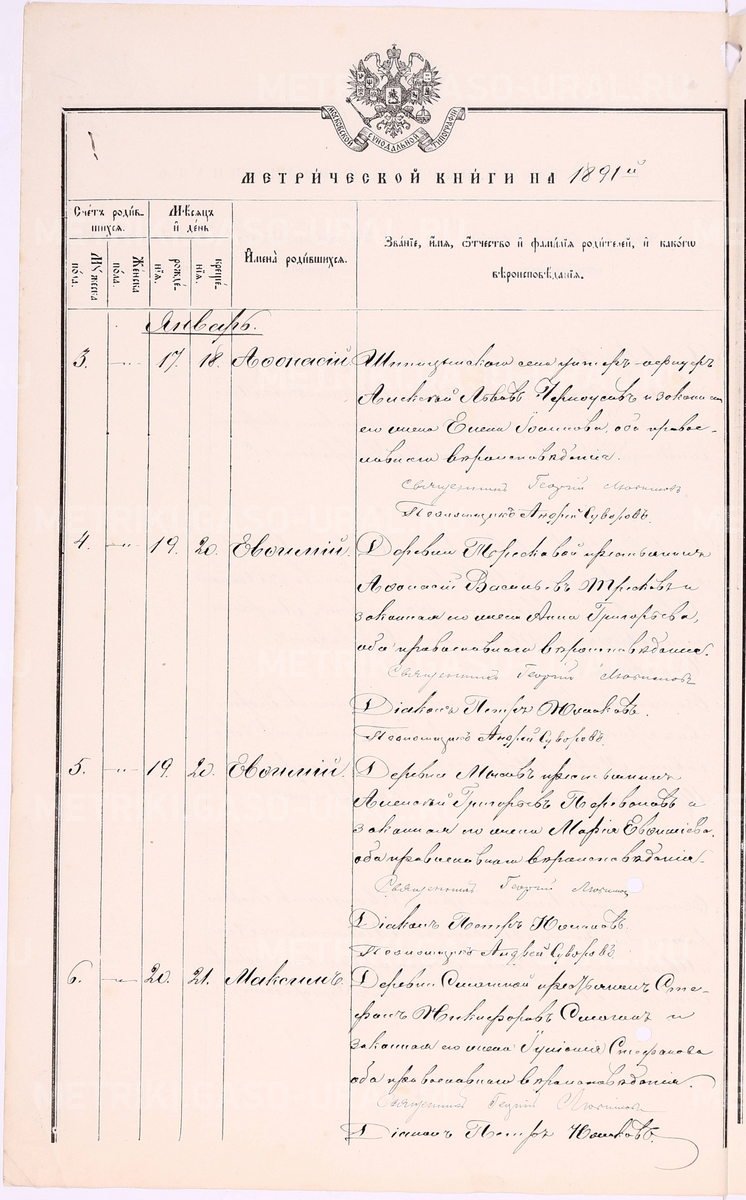 МОСКОВСКОЙ СѴНОДАЛЬНОЙ ТИПОГРАФІИ
МЕТРИ́ЧЕСКОЙ КНИ́ГИ НА 1891й
Сче́тъ роди́в-
шихся.
Мѣ́сяцъ
и́ де́нь
И҆мена̀ роди́вшихся.
Зва́нїе, и҆́мѧ, ѻ҆́тчество и҆ фами́лїѧ роди́телей, и҆ како́гѡ
вѣроисповѣ́данїѧ.
Мꙋ́жеска
по́ла.
Же́нска
по́ла.
рожде́-
нїѧ.
креще́-
нїѧ.
Январь.
3. -„- 17. 18. Аѳонасій
унтеръ-офицеръ
Алексѣй Львовъ и законная
его жена Елена Іоаннова, оба правос-
лавнаго вѣроисповѣданія.
Священникъ Георгій
Псаломщикъ Андрей Суворовъ.
4. -„- 19. 20. Евѳимій.
Деревни крестьянинъ
Аѳонасій Васильевъ и
законная его жена Анна Григорьева,
оба православнаго вѣроисповѣданія.
Священникъ Георгій
Діаконъ Петръ
Псаломщикъ Андрей Суворовъ.
5. -„- 19. 20. Евѳимій.
Деревни крестьянинъ
Алексѣй Григорьевъ и
законная его жена Марія Евѳиміева,
оба православнаго вѣроисповѣданія.
Священникъ Георгій
Діаконъ Петръ
Псаломщикъ Андрей Суворовъ.
6. -„- 20. 21. Максимъ.
Деревни крестьянинъ Сте-
фанъ Никифоровъ и
законная его жена Стефанова
оба православнаго вѣроисповѣданія.
Священникъ Георгій
Діаконъ Петръ